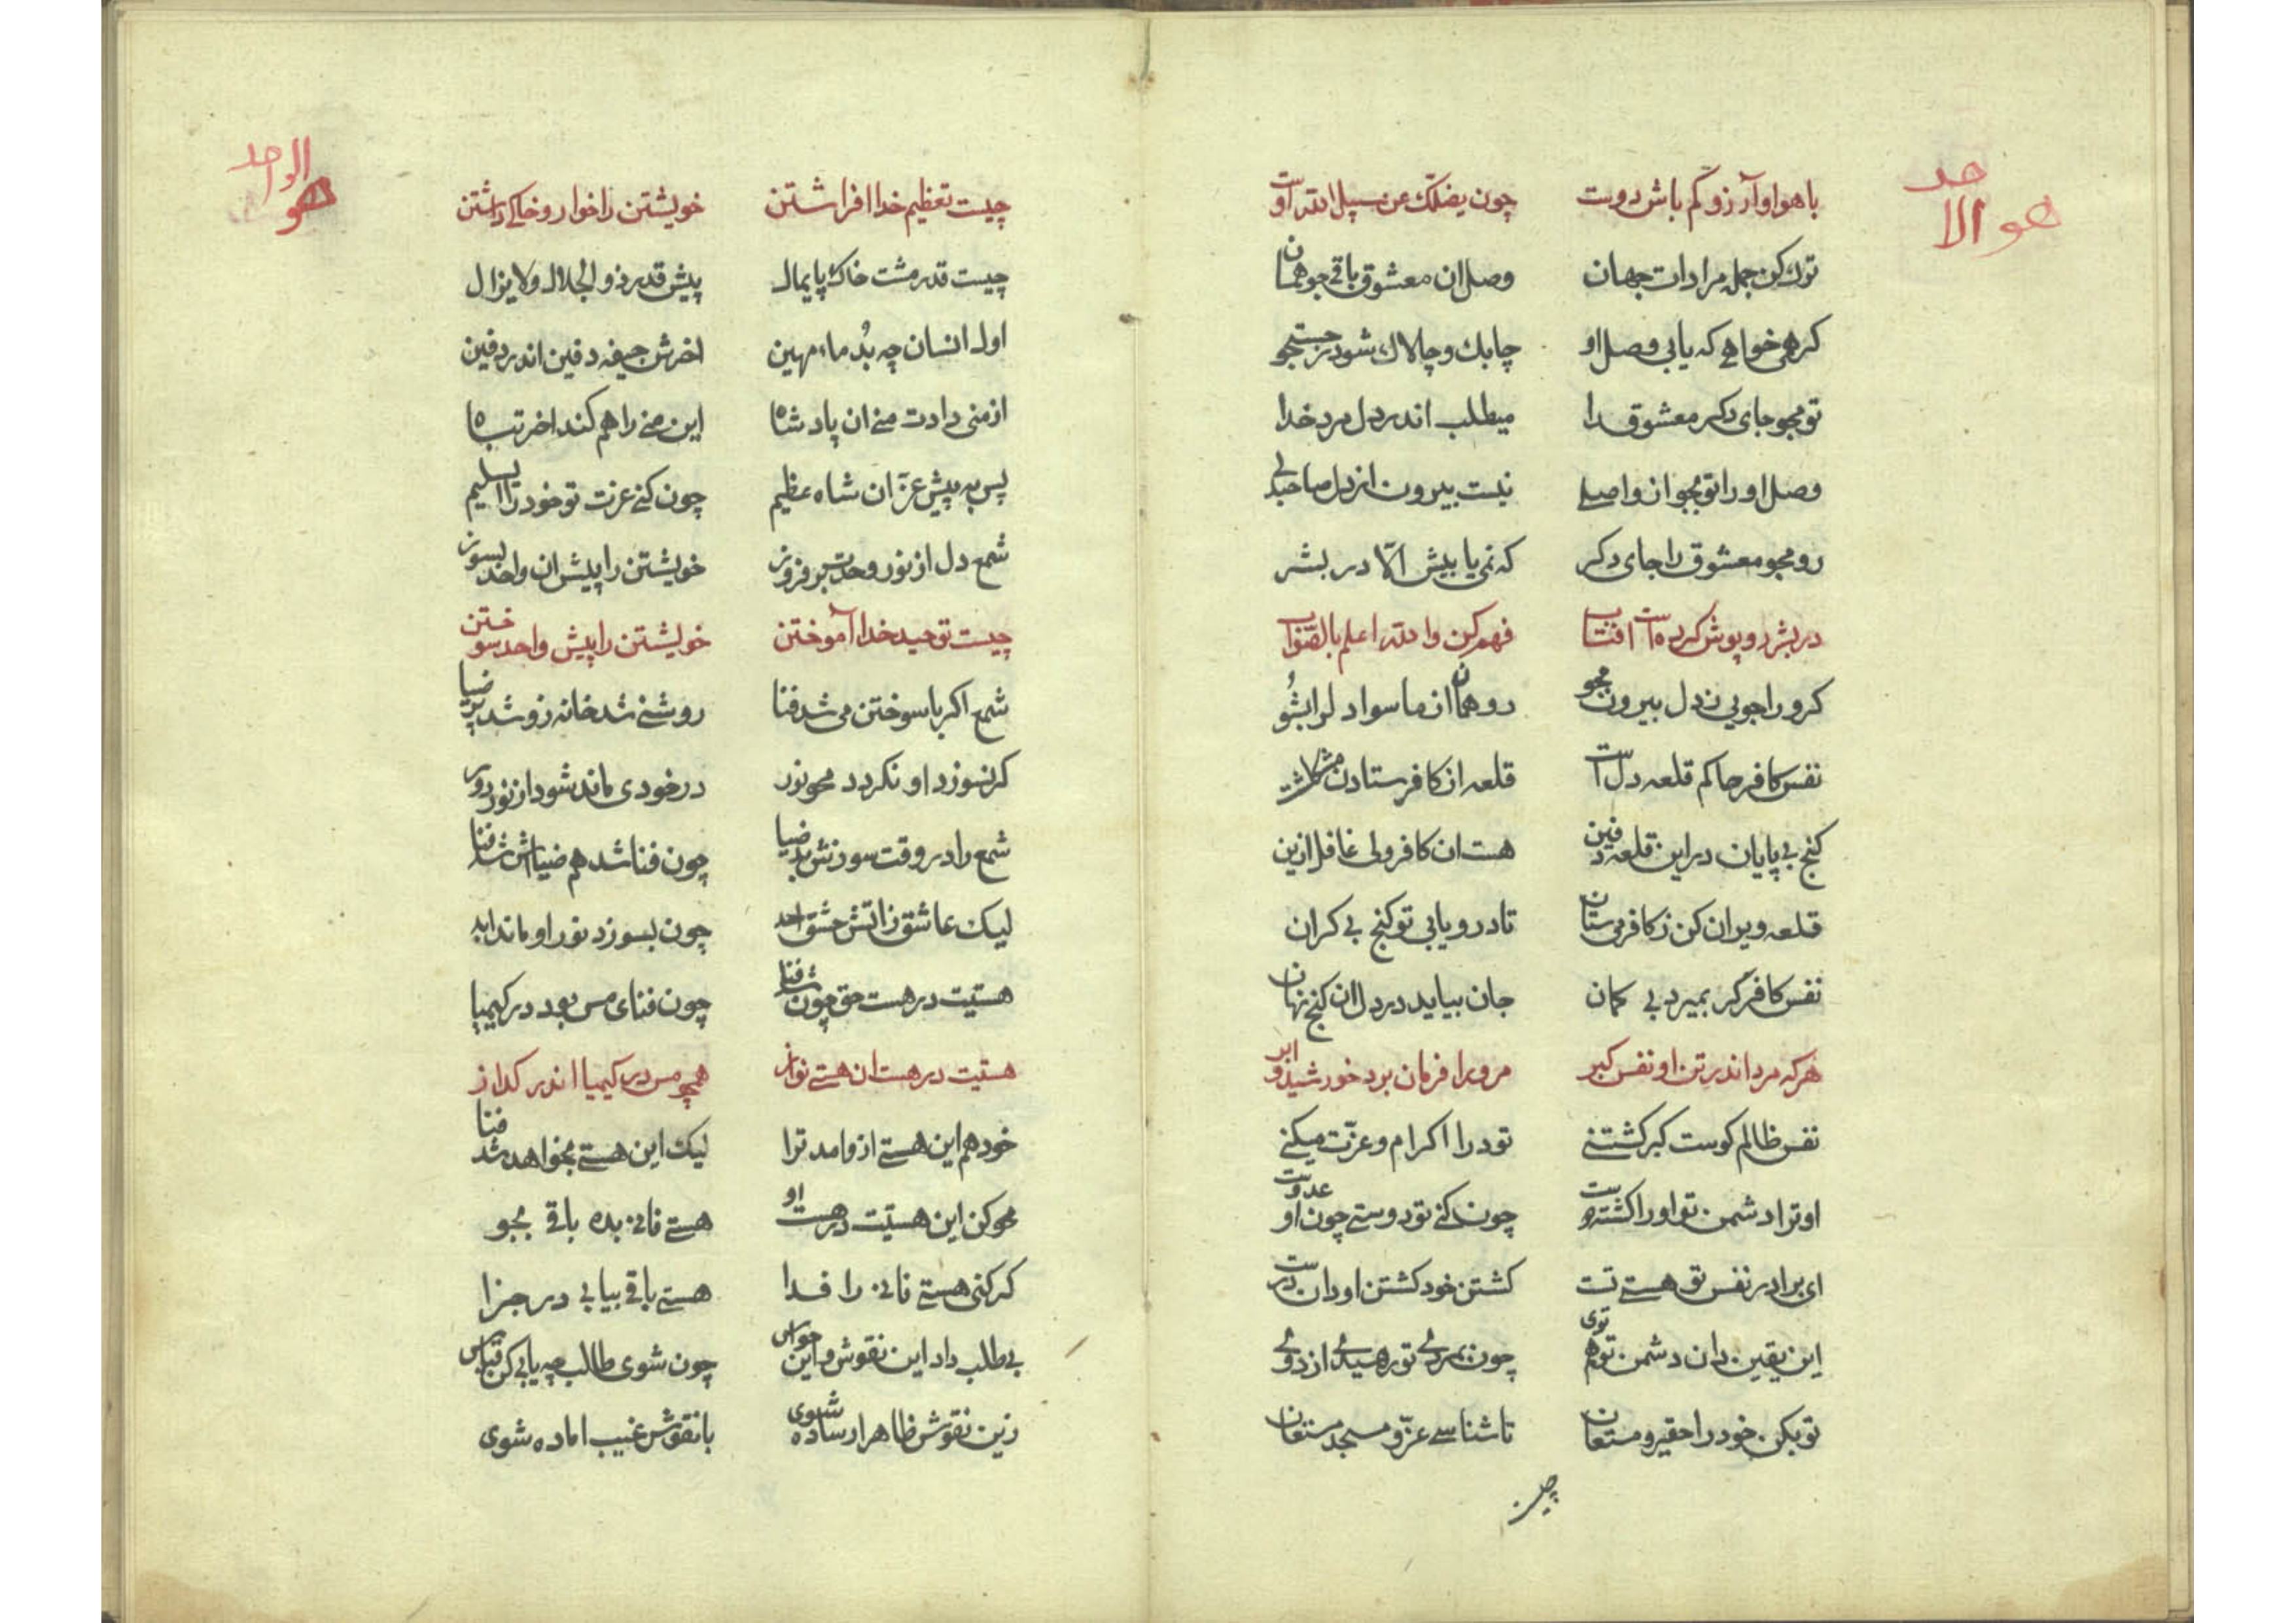 هو الاحد
با هوا و آرزو کم باش دوست چون یضلک عن سبیل الله اوست
ترک کن جمله مرادات جهان وصل ان معشوق باقی جو همان
کر همی خواهی که یابی وصل او چابک و چالاک شو در جستجو
تو مجو جای دکر معشوق را میطلب اندر دل مرد خدا
وصل او را تو مجو از واصلی نیست بیرون از دل صاحبدلی
رو مجو معشوق را جای دکر که نمی یابیش الّا در بشر
در بشر روپوش کرده است افتاب فهم کن والله اعلم بالصّواب
کر ورا جویی ز دل بیرون مجو رو همان از ماسوا دل را بشُو
نفس کافر حاکم قلعه دل است قلعه از کافر ستادن مشکلاست
کنج بی پایان در این قلعه دفین هست ان کافر ولی غافل ازین
قلعه ویران کن ز کافر می ستان تا درو یابی تو کنج بی کران
نفس کافر کر بمیرد بی کمان جان بیاید در دل ان کنج نهان
هر که مرد اندر تن او نفس کبر مرورا فرمان برد خورشید و ابر
نفس ظالم کوست کبر کشتنی تو درا اکرام و عزّت میکنی
او ترا دشمن تو او را کشته دوست چون کنی تو دوستی چون او عدوست
ای برادر نفس تو هستی تست کشتن خود کشتن او دان درست
این یقین دان دشمن تو هم توی چون بمردی تو رهیدی از دوئی
تو بکن خود را حقیر و مستهان تا شناسی عزّ و مجد مستعان
چیست
هو الواحد
چیست تعظیم خدا افراشتن خویشتن را خوار و خاکی داشتن
چیست قدر مشت خاک پایمال پیش قدر ذو الجلال و لا یزال
اول انسان چه بُد ماء مهین اخرش جیفه دفین اندر دفین
از منی دادت منی ان پادشاه این منی را هم کند اخر تباه
پس به پیش عزّ ان شاه عظیم چون کنی عزت تو خود را ای سلیم
شمع دل از نور وحدت بر فروز خویشتن را پیش ان واحد بسوز
چیست توحید خدا آموختن خویشتن را پیش واحد سوختن
شمع اکر با سوختن می شد فنا روشنی شد خانه زو شد پر ضیا
کر نسوزد او نکردد محو نور در خودی ماند شود از نور دور
شمع را در وقت سوزش بد ضیا چون فنا شد هم ضیااش شد فنا
لیک عاشق ز اتش عشق احد چون بسوزد نور او ماند ابد
هستیت در هست حق چون شد فنا چون فنای مس بود در کیمیا
هستیت در هست ان هستی نواز همچو مس در کیمیا اندر کداز
خود هم این هستی ازو امد ترا لیک این هستی بخواهد شد فنا
محو کن این هستیت در هست او هستی فانی بده باقی بجو
کر کنی هستی فانی را فدا هستی باقی بیابی در جزا
بی طلب داد این نقوش و این حواس چون شوی طالب چه یابی کن قیاس
زین نقوش ظاهر ار ساده شوی با نقوش غیب اماده شوی